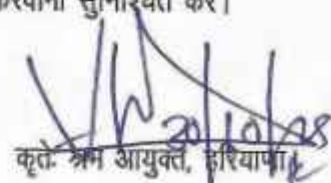 करवाना सुनिश्चित करें।
20/10/25
कृतेः श्रम आयुक्त, हरियाणा।